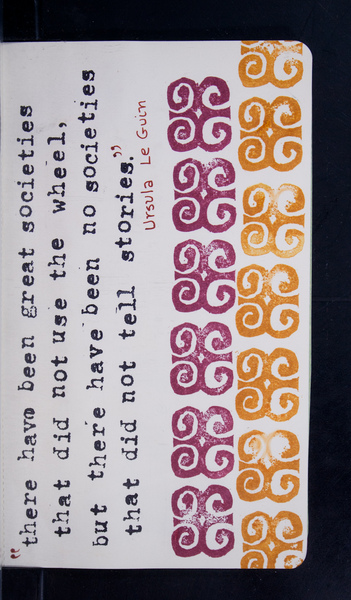 “there havm been great societies
that did not use the wheel,
but there have been no societies
that did not tell stories.”
Ursula Le Guin